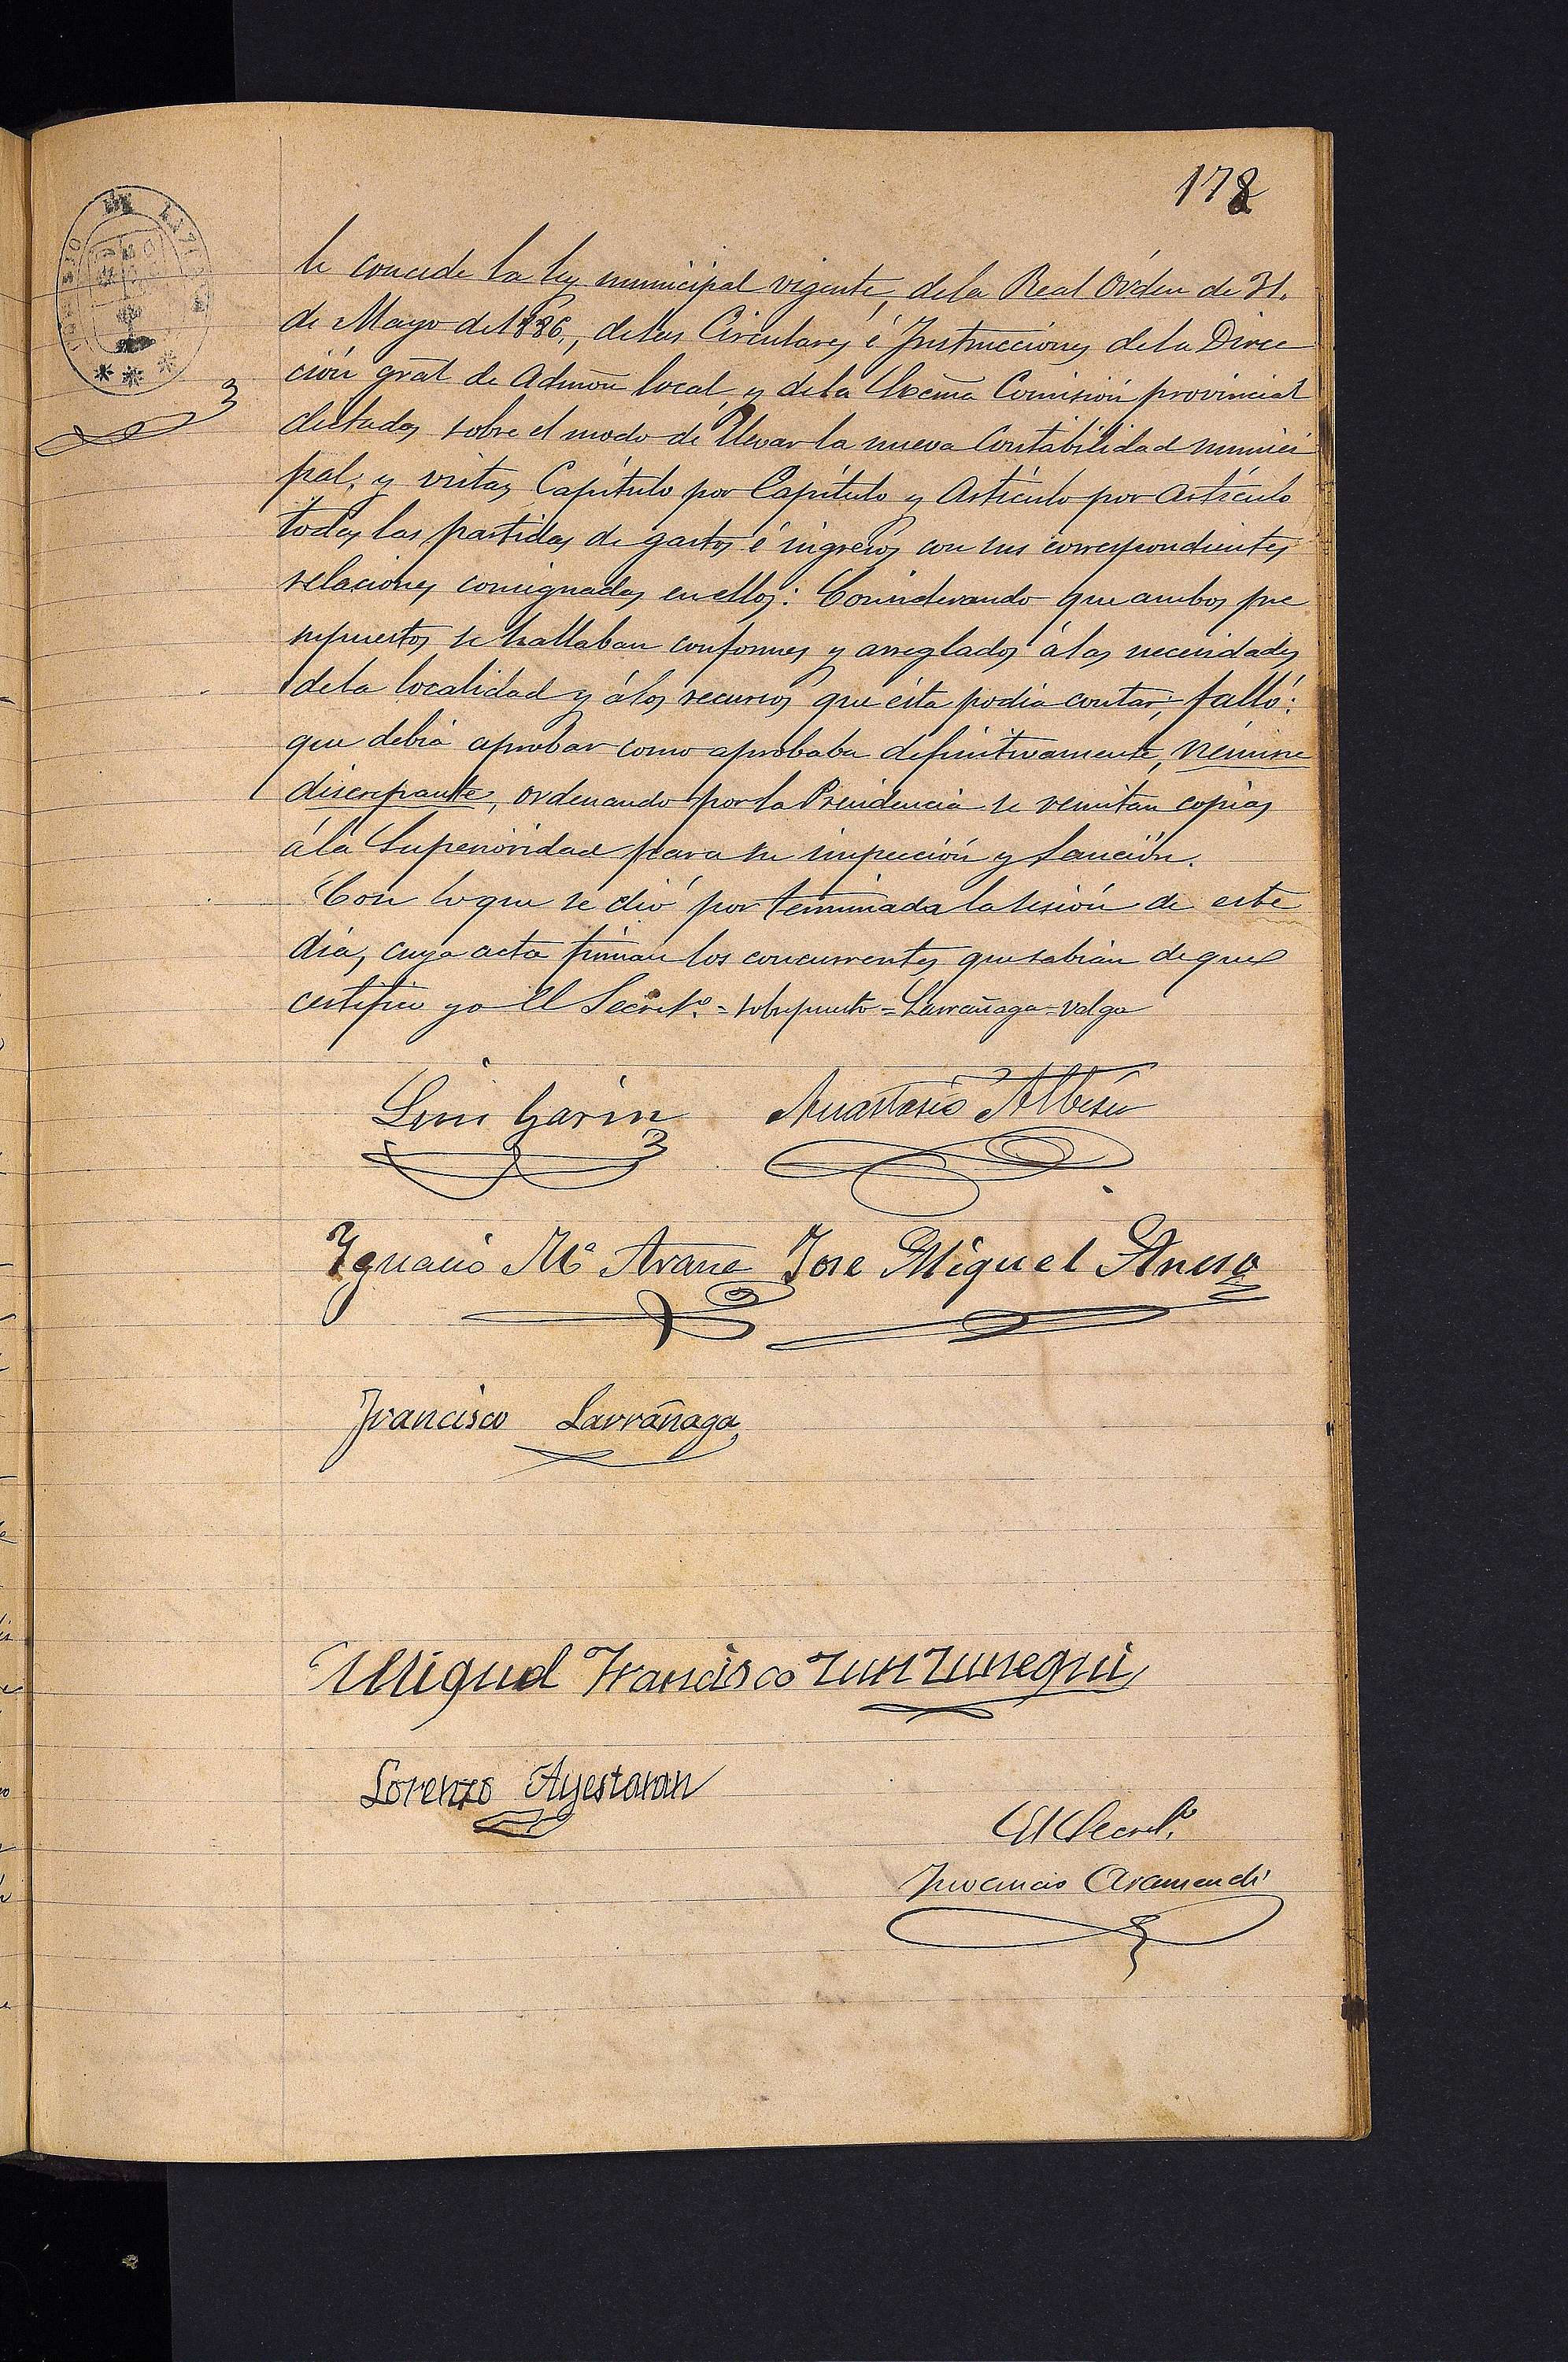 178
le concede la ley municipal vigente, de la Real Orden de 31.
de Mayo de 1886, de las Circulares é Instrucciones de la Direc
ción gral de Admon local, y de la Excma Comisión provincial
dictadas sobre el modo de llevar la nueva Contabilidad munici
pal, y vistas Capítulo por Capítulo y Artículo por Artículo
todas las partidas de gastos é ingresos con sus correspondientes
relaciones consignadas en ellos: Considerando que ambos pre
supuestos se hallaban conformes y arreglados á las necesidades
de la localidad y á los recursos que ésta podia contar; falló:
que debia aprobar como aprobaba definitivamente, némine
discrepante, ordenando por la Presidencia se remitan copias
á la Superioridad para su inspección y Sanción.
Con lo que se dió por terminada la sesión de este
dia, cuya acta firman los concurrentes que sabian de que
certifico yo El Secret.º = sobrepuesto = Larrañaga = valga
Luis Garin Anastasio Albisu
Ygnacio Mª Arana Jose Miguel
Francisco Larrañaga
Miguel Francisco Zunzunegui
Lorenzo Ayestaran
El Secret.º
Inocencio Aramendi